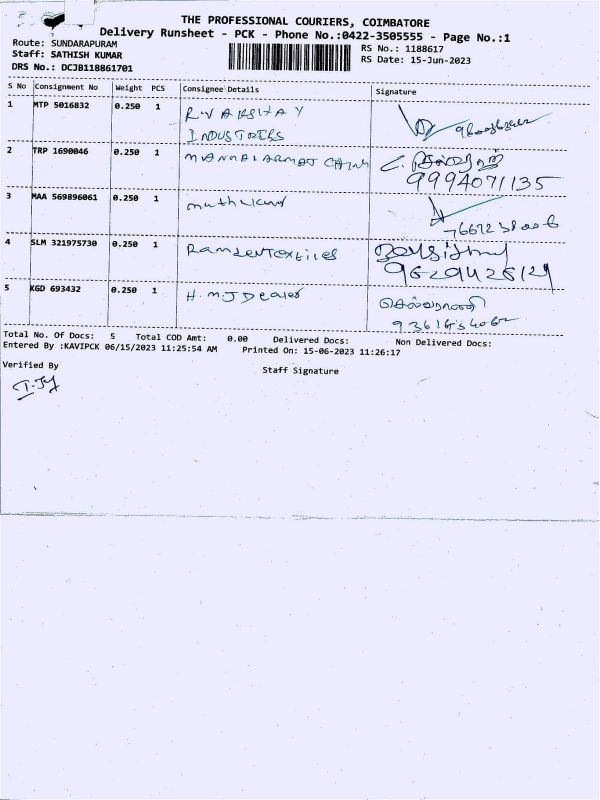 THE PROFESSIONAL COURIERS, COIMBATORE
Delivery Runsheet - PCK - Phone No.:0422-3505555 - Page No.:1
Route: SUNDARAPURAM
RS No.: 1188617
Staff: SATHISH KUMAR
RS Date: 15-Jun-2023
DRS No.: DCJB118861701
S No Consignment No Weight PCS Consignee Details Signature
1 MTP 5016832 0.250 1 R.V AKSHAY
INDUSTRIES
2 TRP 1690046 0.250 1
9994071135
3 MAA 569896061 0.250 1
4 SLM 321975730 0.250 1
9629426129
5 KGD 693432 0.250 1 H.MJ Dealer
செல்வராணி
Total No. Of Docs: 5 Total COD Amt: 0.00 Delivered Docs: Non Delivered Docs:
Entered By :KAVIPCK 06/15/2023 11:25:54 AM Printed On: 15-06-2023 11:26:17
Verified By
Staff Signature